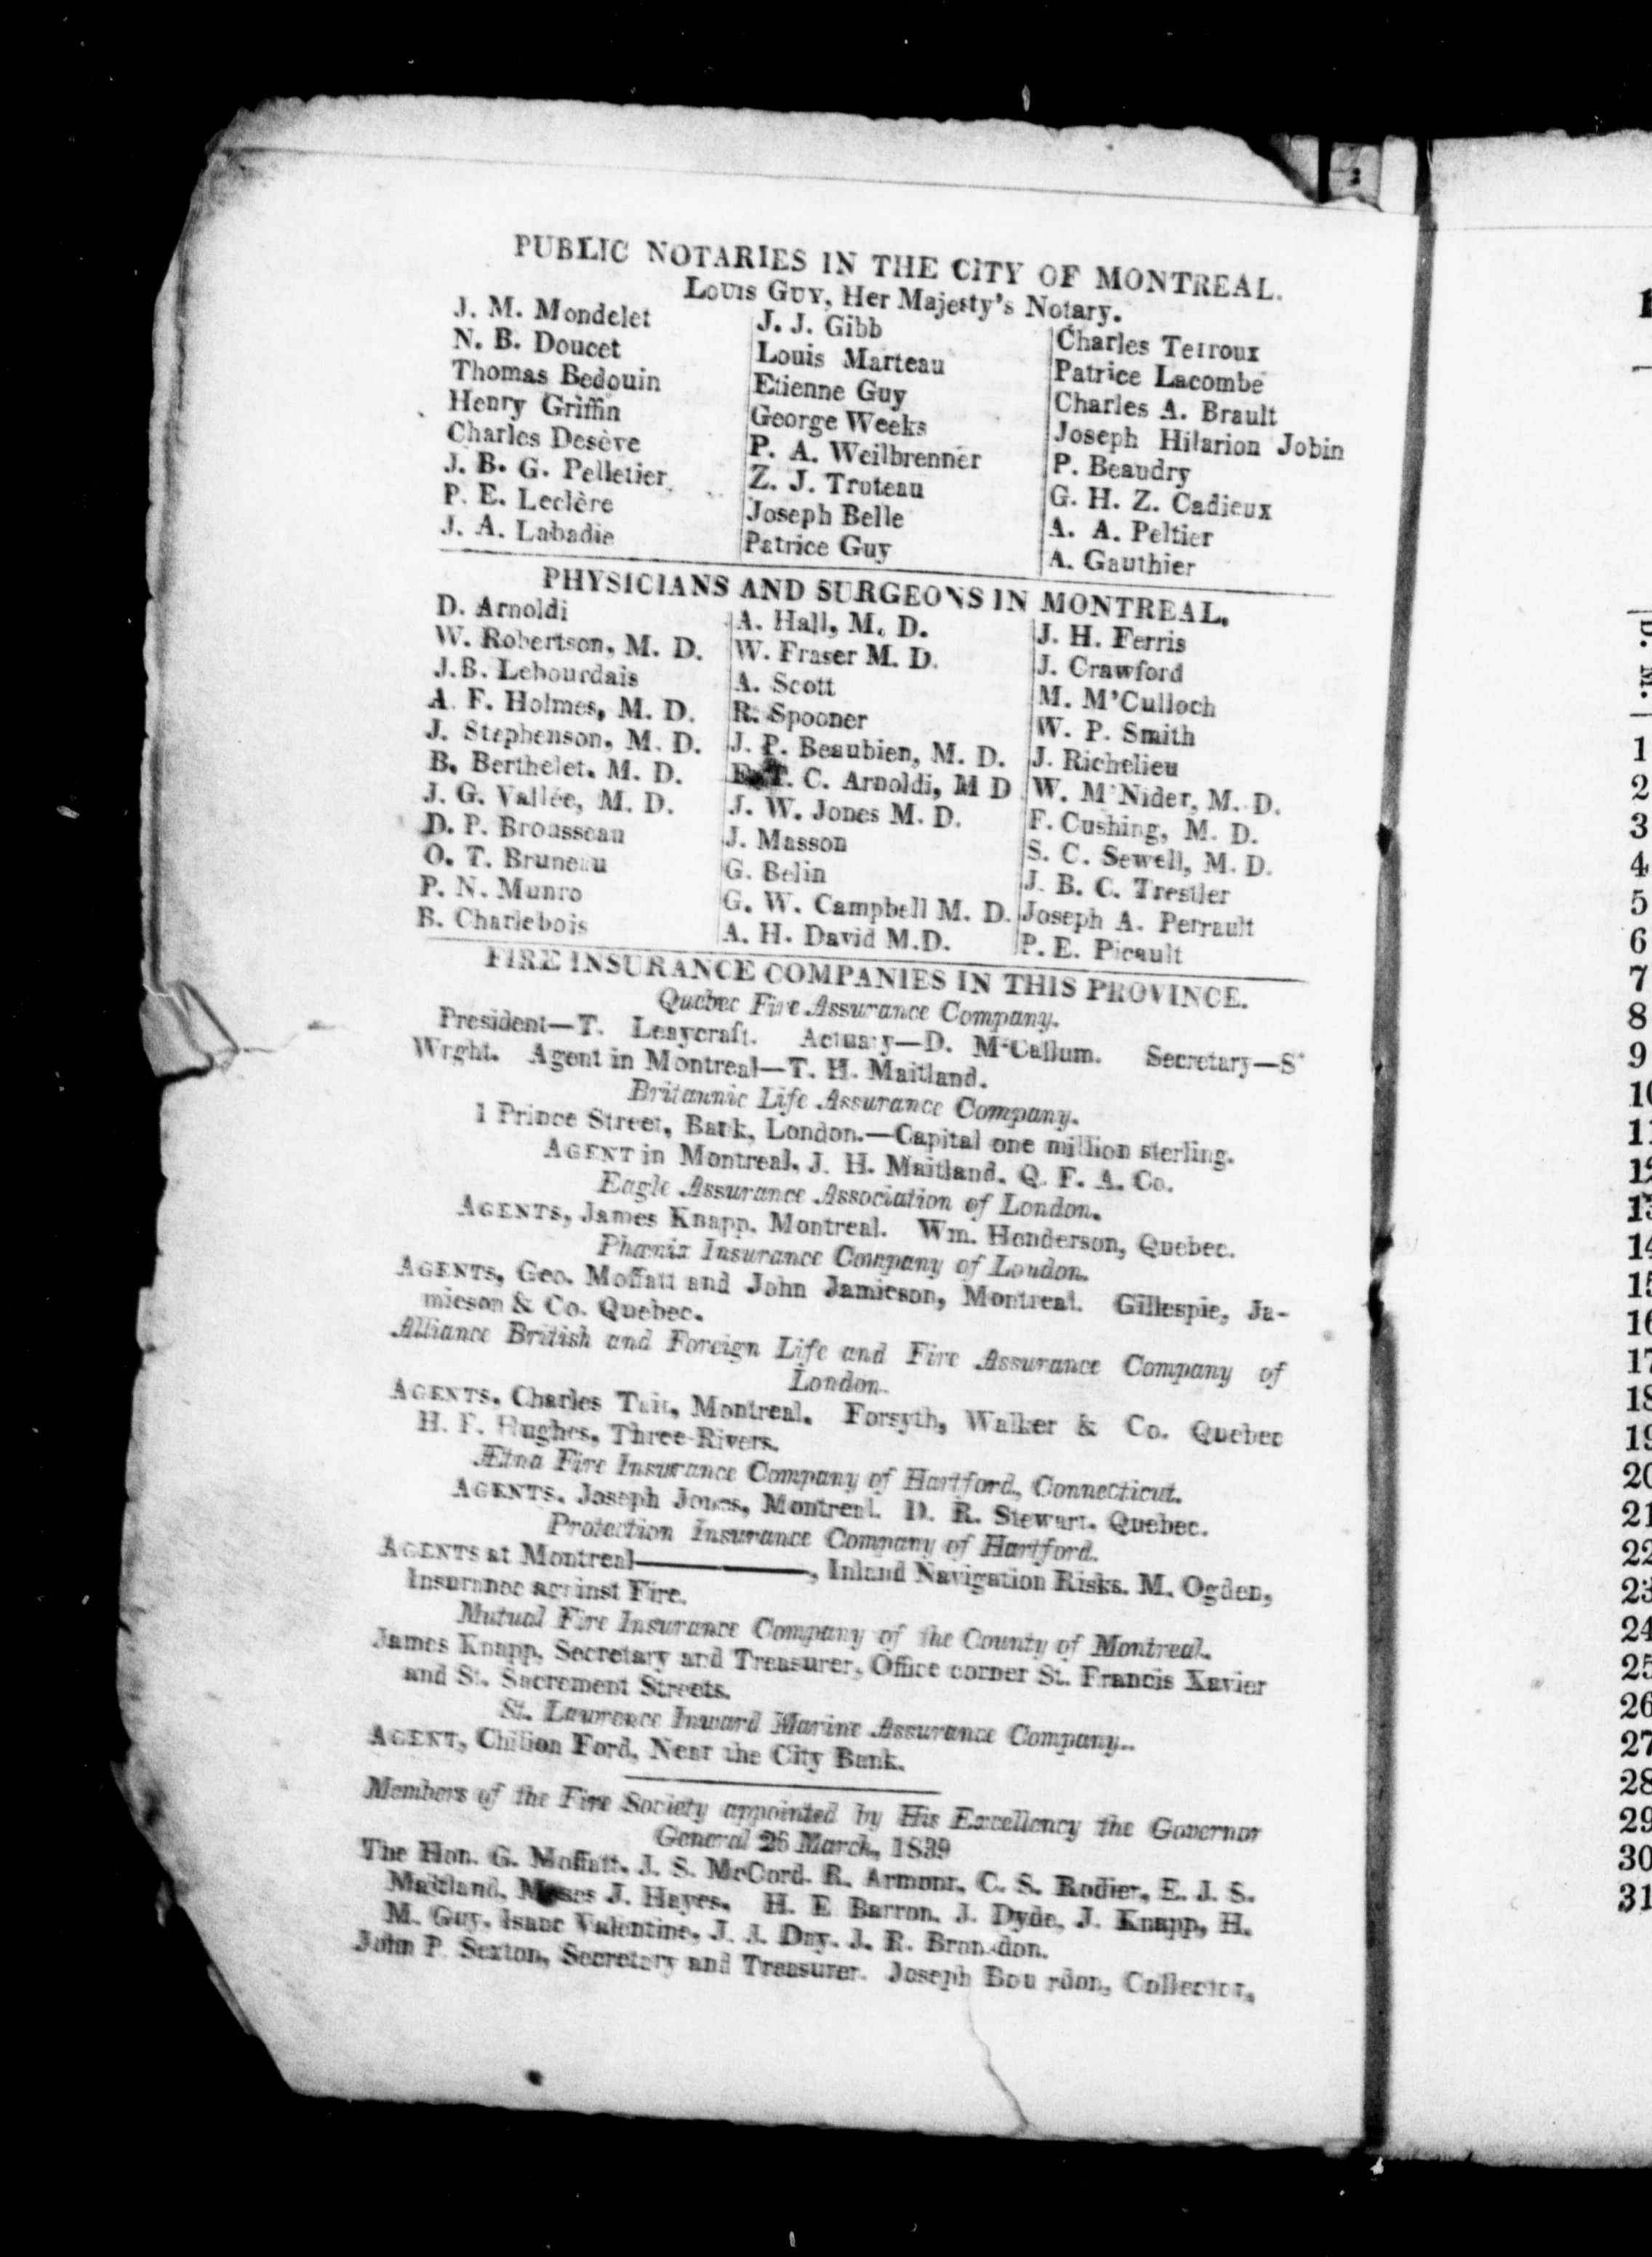 PUBLIC NOTARIES IN THE CITY OF MONTREAL.
LOUIS GUY, Her Majesty's Notary.
J. M. Mondelet
N. B. Doucet
Thomas Bedouin
Henry Griffin
Charles Desève
J. B. G. Pelletier
P. E. Leclère
J. A. Labadie
J. J. Gibb
Louis Marteau
Etienne Guy
George Weeks
P. A. Weilbrenner
Z. J. Truteau
Joseph Belle
Patrice Guy
Charles Tetroux
Patrice Lacombe
Charles A. Brault
Joseph Hilarion Jobin
P. Beaudry
G. H. Z. Cadieux
A. A. Peltier
A. Gauthier
PHYSICIANS AND SURGEONS IN MONTREAL.
D. Arnoldi
W. Robertson, M. D.
J.B. Lebourdais
A. F. Holmes, M. D.
J. Stephenson, M. D.
B. Berthelet. M. D.
J. G. Vallée, M. D.
D. P. Brousseau
O. T. Bruneau
P. N. Munro
B. Charlebois
A. Hall, M. D.
W. Fraser M. D.
A. Scott
R. Spooner
J. P. Beaubien, M. D.
C. Arnoldi, M D
J. W. Jones M. D.
J. Masson
G. Belin
G. W. Campbell M. D.
A. H. David M.D.
J. H. Ferris
J. Crawford
M. M'Culloch
W. P. Smith
J. Richelieu
W. M'Nider, M. D.
F. Cushing, M. D.
S. C. Sewell, M. D.
J. B. C. Trestler
Joseph A. Perrault
P. E. Picault
FIRE INSURANCE COMPANIES IN THIS PROVINCE.
Quebec Fire Assurance Company.
President—T. Leaycraft. Actuary—D. McCallum. Secretary—S
Wrght. Agent in Montreal—T. H. Maitland.
Britannic Life Assurance Company.
1 Prince Street, Bank, London.—Capital one million sterling.
AGENT in Montreal, J. H. Maitland. Q. F. A. Co.
Eagle Assurance Association of London.
AGENTS, James Knapp. Montreal. Wm. Henderson, Quebec.
Phœnix Insurance Company of London.
AGENTS, Geo. Moffatt and John Jamieson, Montreal. Gillespie, Ja-
mieson & Co. Quebec.
Alliance British and Foreign Life and Fire Assurance Company of
London.
AGENTS, Charles Tait, Montreal. Forsyth, Walker & Co. Quebec
H. F. Hughes, Three-Rivers.
Ætna Fire Insurance Company of Hartford, Connecticut.
AGENTS. Joseph Jones, Montreal. D. R. Stewart. Quebec.
Protection Insurance Company of Hartford.
AGENTS at Montreal————, Inland Navigation Risks. M. Ogden,
Insurance against Fire.
Mutual Fire Insurance Company of the County of Montreal.
James Knapp, Secretary and Treasurer, Office corner St. Francis Xavier
and St. Sacrement Streets.
St. Lawrence Inward Marine Assurance Company..
AGENT, Chilion Ford, Near the City Bank.
Members of the Fire Society appointed by His Excellency the Governor
General 26 March, 1839
The Hon. G. Moffatt. J. S. McCord. R. Armour, C. S. Rodier, E. J. S.
Maitland, Moses J. Hayes. H. E Barron. J. Dyde, J. Knapp, H.
M. Guy. Isaac Valentine, J. J. Day. J. R. Bronsdon.
John P. Sexton, Secretary and Treasurer. Joseph Bourdon, Collector,
D. M.
1
2
3
4
5
6
7
8
9
14
17
20
21
22
23
24
25
26
27
28
29
30
31